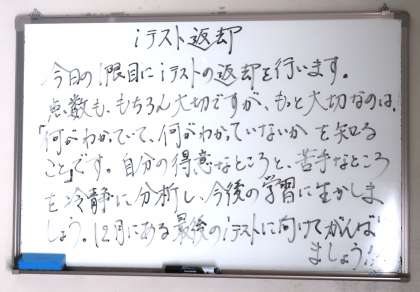 iテスト返却
今日の1限目にiテストの返却を行います。
点数も、もちろん大切ですが、もっと大切なのは、
「何がわかっていて、何がわかっていないかを知る
こと」です。自分の得意なところと、苦手なところ
を冷静に分析し、今後の学習に生かしま
しょう。12月にある最後のiテストに向けてがんば
りましょう!!